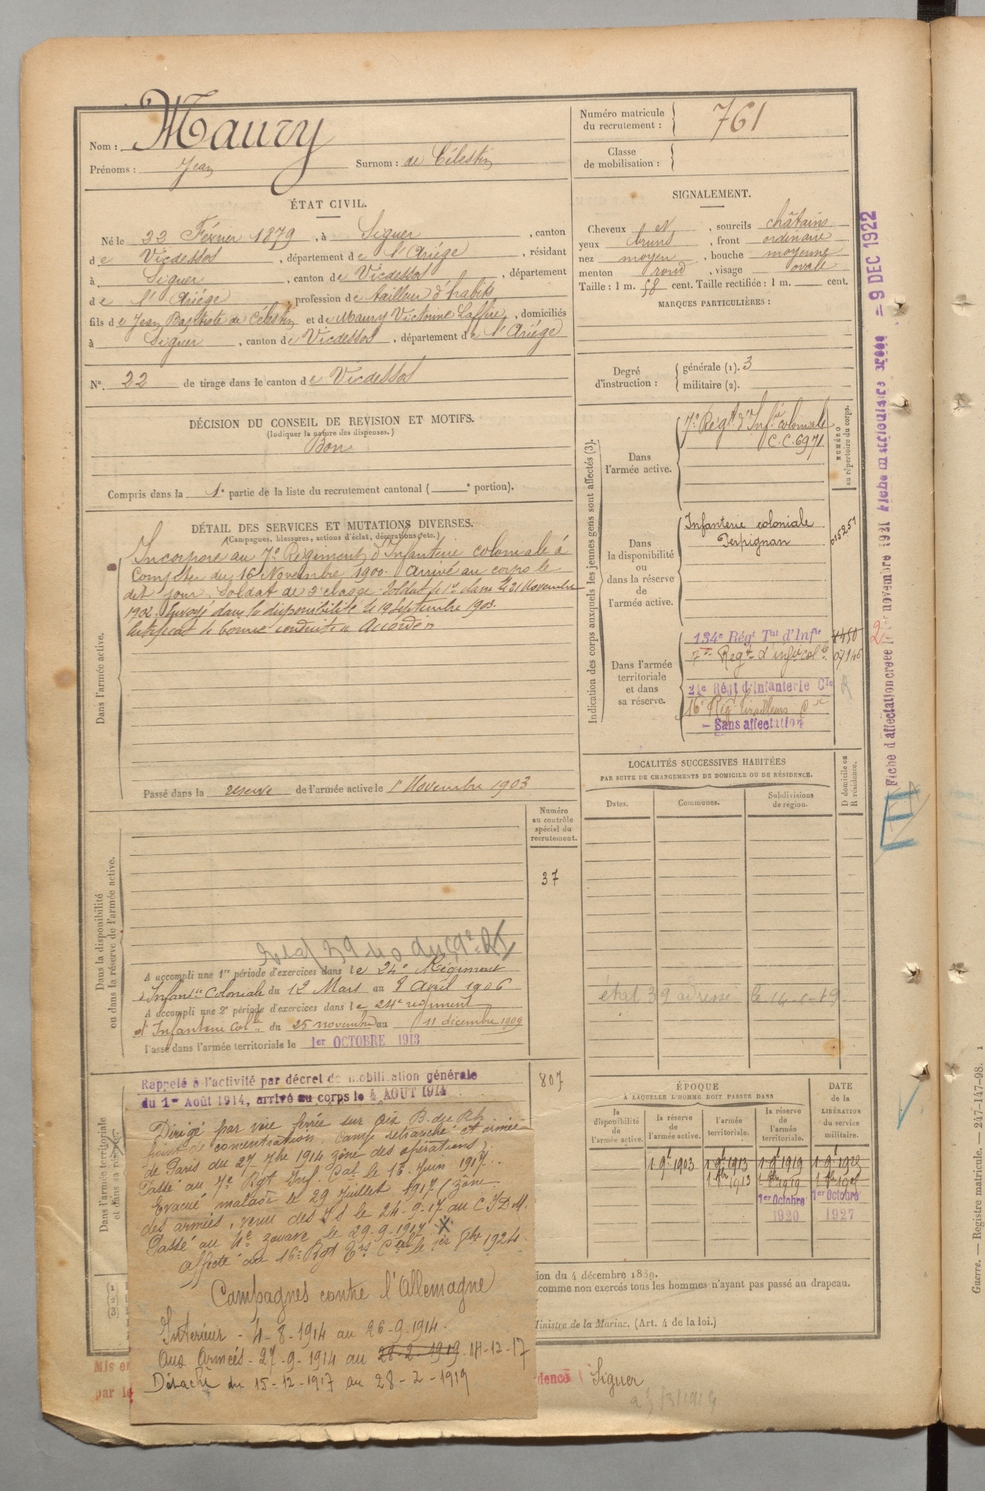 Nom : Maury
Prénoms : Jean Surnom : de Célestin
Numéro matricule du recrutement : 761
Classe de mobilisation :
ÉTAT CIVIL.
Né le 22 Février 1879, à Siguer, canton
de Vicdessos, département de l'Ariège, résidant
à Siguer, canton de Vicdessos, département
de l'Ariège, profession de tailleur d'habits
fils de Jean Baptiste de Célestin et de Maury Victorine Laffire, domiciliés
à Siguer, canton de Vicdessos, département de l'Ariège
N° 22 de tirage dans le canton de Vicdessos
SIGNALEMENT.
Cheveux et, sourcils châtains
yeux bruns, front ordinaire
nez moyen, bouche moyenne
menton rond, visage ovale
Taille : 1 m. 58 cent. Taille rectifiée : 1 m. cent.
MARQUES PARTICULIÈRES :
Degré d'instruction : générale (1). 3
militaire (2).
DÉCISION DU CONSEIL DE REVISION ET MOTIFS.
(Indiquer la nature des dispenses.)
Bon
Compris dans la 1e partie de la liste du recrutement cantonal ( e portion).
DÉTAIL DES SERVICES ET MUTATIONS DIVERSES.
(Campagnes, blessures, actions d'éclat, décorations, etc.)
Dans l'armée active.
Incorporé au 7e Régiment d'Infanterie coloniale à
compter du 16 Novembre 1900. Arrivé au corps le
dit jour, soldat de 2e classe. Soldat de 1re classe le 21 Novembre
1902. Envoyé dans la disponibilité le 19 septembre 1903.
Certificat de bonne conduite Accordé
Passé dans la réserve de l'armée active le 1er Novembre 1903
Indication des corps auxquels les jeunes gens sont affectés (3).
NUMÉRO au répertoire du corps.
Dans l'armée active.
7e Régt d'Infie coloniale
C.C. 6971
Dans la disponibilité ou dans la réserve de l'armée active.
Infanterie coloniale
Perpignan
015251
Dans l'armée territoriale et dans sa réserve.
134e Régt Tal d'Infie
7e Regt d'inf col
24e Régt d'Infanterie Cle
16e Rég tirailleurs
Sans affectation
Fiche d'affectation créée 1er novembre 1921 Fiche matriculaire créée = 9 DEC 1922
LOCALITÉS SUCCESSIVES HABITÉES
PAR SUITE DE CHANGEMENTS DE DOMICILE OU DE RÉSIDENCE.
Dates. Communes. Subdivisions de région. D domicile ou R résidence.
etat 39 adresse le 14-1-19
Dans la disponibilité ou dans la réserve de l'armée active.
Numéro au contrôle spécial du recrutement.
37
A accompli une 1re période d'exercices dans le 24e Régiment
d'Infantie Coloniale du 12 Mars au 8 Avril 1906
A accompli une 2e période d'exercices dans le 24e régiment
d'Infanterie Colle du 25 novembre au 11 décembre 1909
Passé dans l'armée territoriale le 1er OCTOBRE 1913
Dans l'armée territoriale et dans sa réserve.
807
Rappelé à l'activité par décret de mobilisation générale
du 1er Août 1914, arrivé au corps le 4 AOUT 1914
Dirigé par voie ferrée sur Aix B. du Rh.
point de concentration. Camp retranché et armée
de Paris du 27 7bre 1914 zône des opérations
Passé au 7e Rgt Inf. Cal le 13 Juin 1917.
Evacué malade le 29 Juillet 1917 (zône
des armées), venu des le 24.9.17 au C.I.D.M.
Passé au 4e zouave le 29.9.1917 X
Affecté au 16e Rgt Crs Cal le 1er 1924
Campagnes contre l'Allemagne
Intérieur - 4-8-1914 au 26-9-1914.
Aux Armées - 27-9-1914 au 28-2-1919 14-12-17
Détaché du 15-12-1917 au 28-2-1919
ÉPOQUE
À LAQUELLE L'HOMME DOIT PASSER DANS
DATE DE LA LIBÉRATION du service militaire.
la disponibilité de l'armée active. la réserve de l'armée active. l'armée territoriale. la réserve de l'armée territoriale.
1 9bre 1903 1 9bre 1913 1 9bre 1919 1 9bre 1922
1er Octobre 1920 1er Octobre 1927
ion du 4 décembre 1889.
comme non exercés tous les hommes n'ayant pas passé au drapeau.
Ministre de la Marine. (Art. 4 de la loi.)
Mis en
par le
dence à Siguer
Guerre. — Registre matricule. — 247-147-98. 1